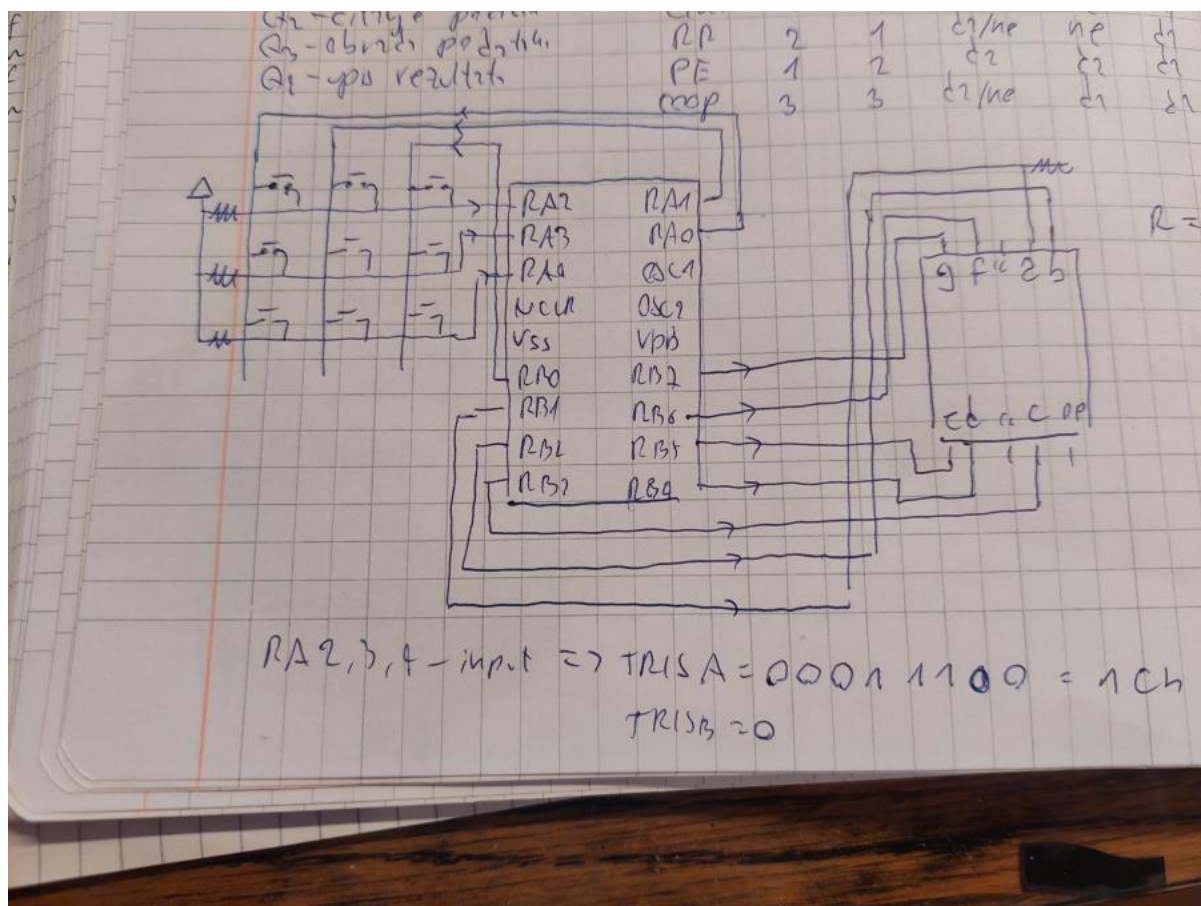 Q3 - obrada podatka
RR 2 1 da/ne ne da
PE 1 2 da da da
COOP 3 3 da/ne da da
RA2 RA1
RA3 RA0
RA4 OSC1
MCLR OSC2
VSS VDD
RB0 RB7
RB1 RB6
RB2 RB5
RB3 RB4
g f a b
R =
e d c DP
RA2, 3, 4 - input => TRISA = 00011100 = 1Ch
TRISB = 0